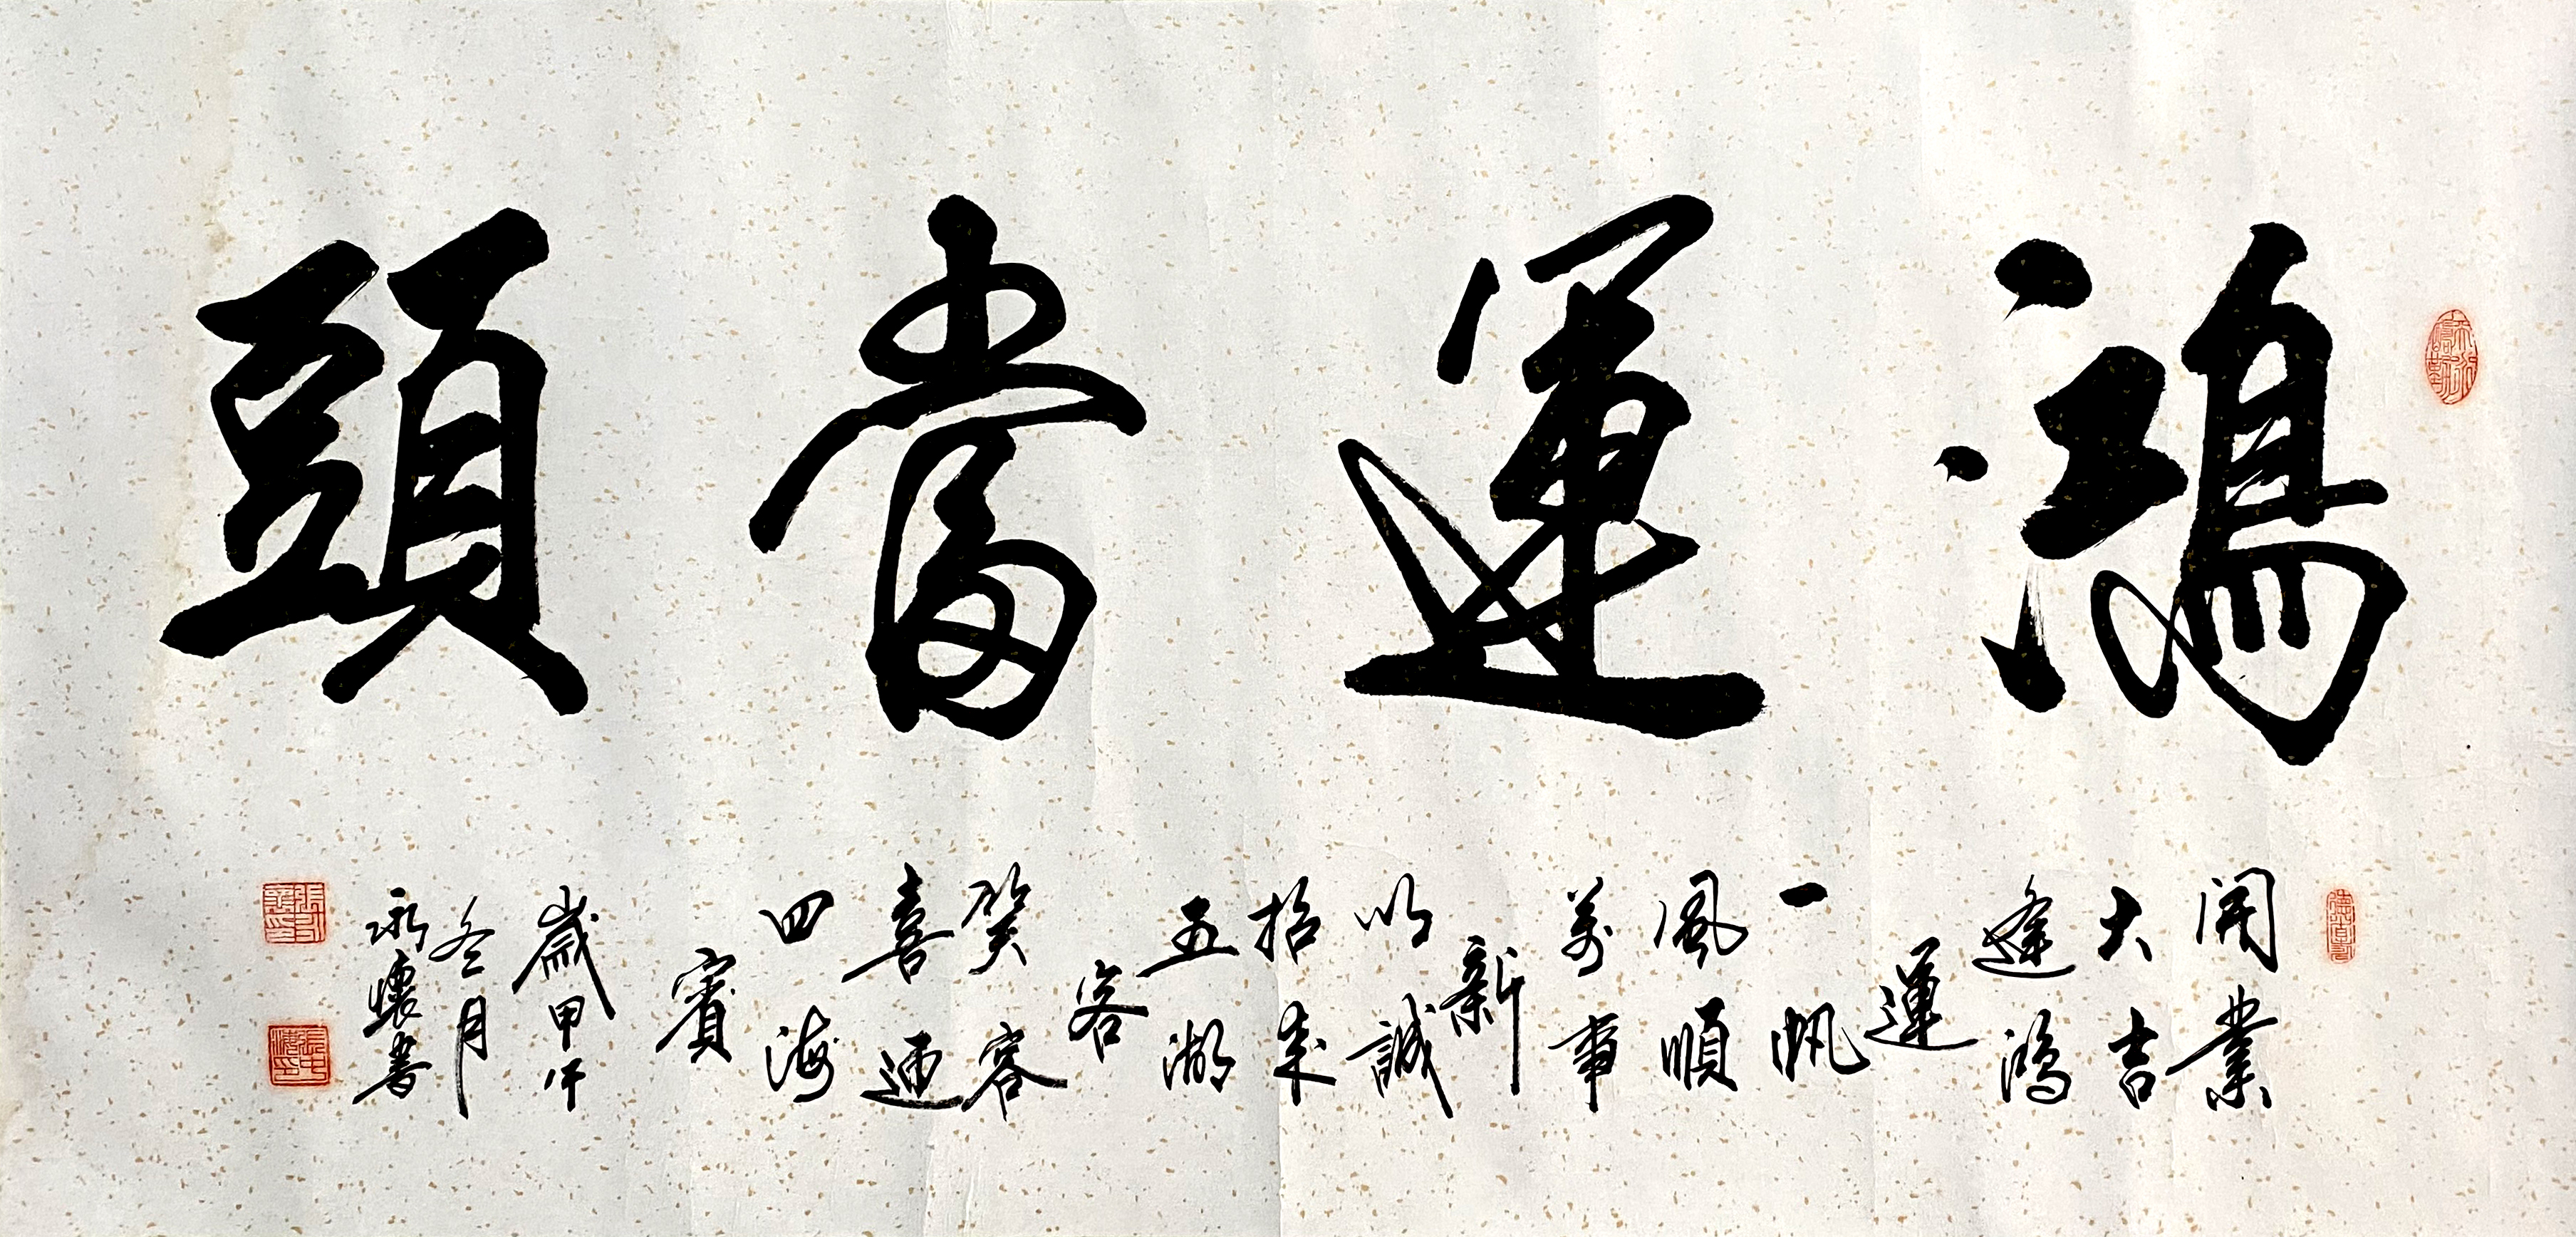 鴻運當頭
開業
大吉
逢鴻
運
一帆
風順
萬事
新
以誠
招來
五湖
客
笑容
喜迎
四海
賓
歲甲午
冬月
永懷書